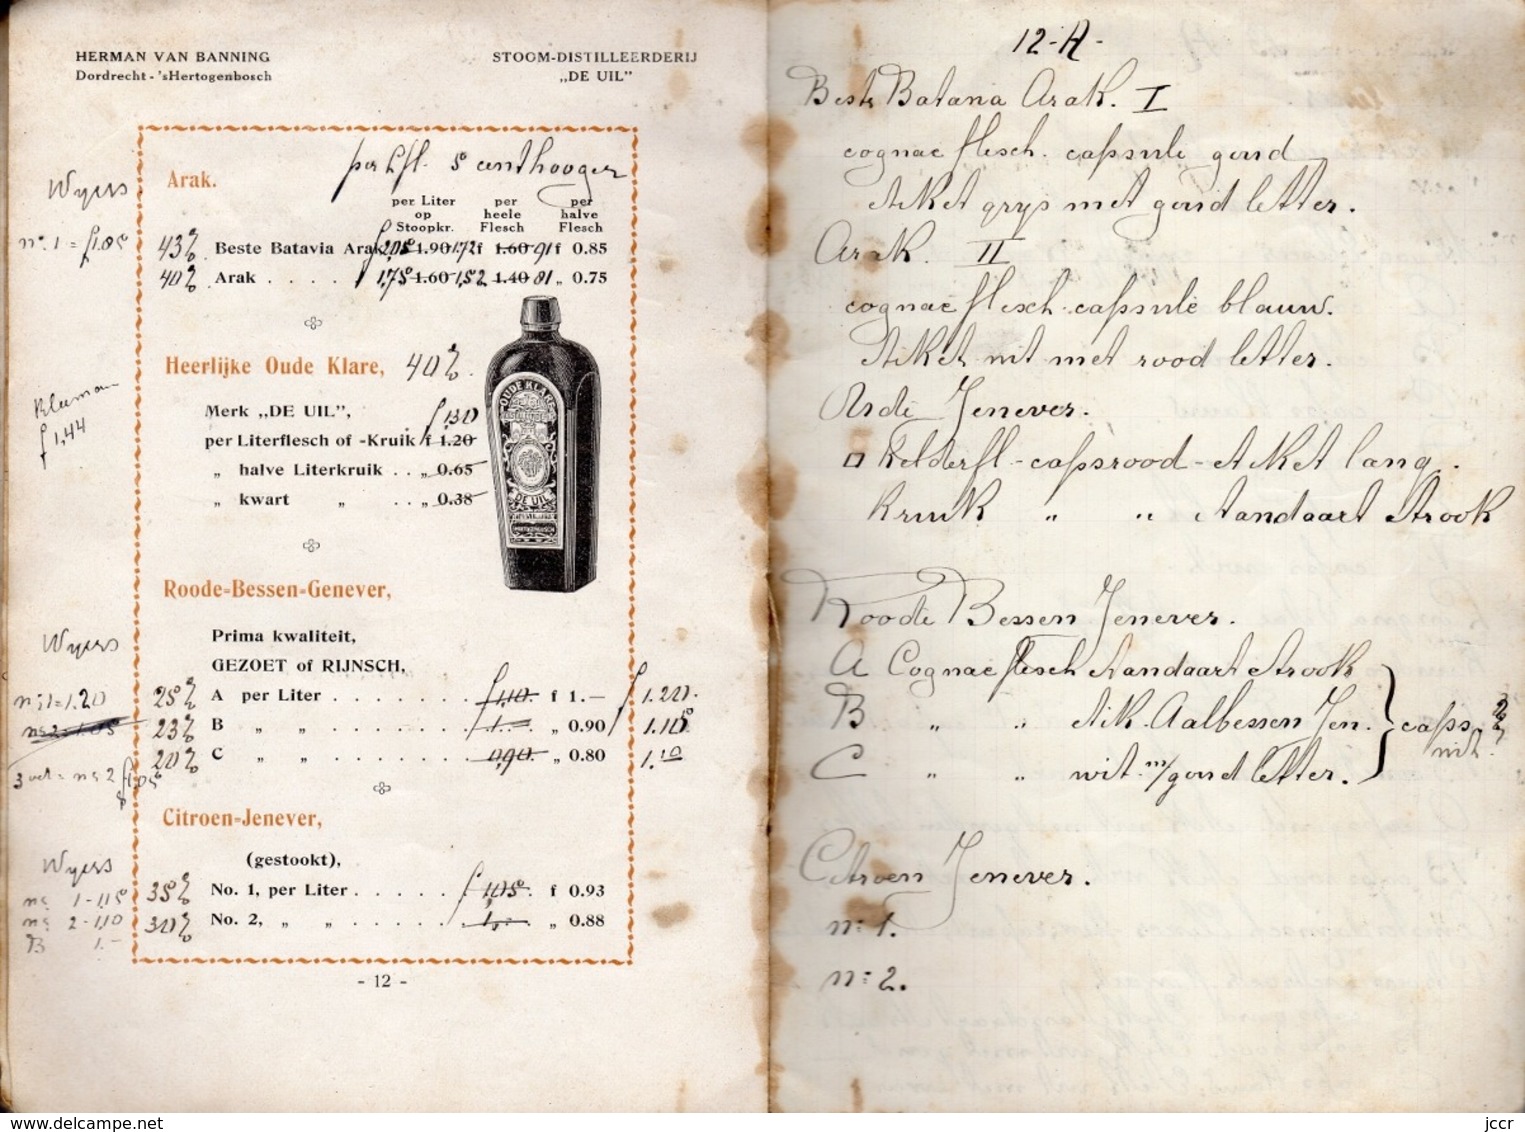 HERMAN VAN BANNING
Dordrecht - 'sHertogenbosch
STOOM-DISTILLEERDERIJ
„DE UIL”
Arak.
per ½ fl. 5 cent hooger
per Liter op Stoopkr.
per heele Flesch
per halve Flesch
Wyers
nº. 1 = f 1.85
43% Beste Batavia Arak f 2.05 1.90 1.72 f 1.60 91 f 0.85
40% Arak . . . . 1.75 1.60 1.52 1.40 81 „ 0.75
Heerlijke Oude Klare, 40%.
Merk „DE UIL”, f 1.30
per Literflesch of -Kruik f 1.20
„ halve Literkruik . . „ 0.65
„ kwart „ . . „ 0.38
f 1,44
OUDE KLARE
DE UIL
Roode-Bessen-Genever,
Prima kwaliteit,
GEZOET of RIJNSCH,
Wyers
nº 1 = 1.20
25% A per Liter . . . . . . . f 1,10. f 1.— f 1.20.
nº 2 = 1.05
23% B „ „ . . . . . . . 1.— „ 0.90 f 1.15
20% C „ „ . . . . . . . 0,90 „ 0.80 1.10
nº 2 f 1.05
Citroen-Jenever,
(gestookt),
Wyers
nº 1 - 1,15
35% No. 1, per Liter . . . . . f 1,05. f 0.93
nº 2 - 1,10
30% No. 2, „ „ . . . . . 1,- „ 0.88
B 1.-
- 12 -
12-A-
Beste Batavia Arak. I
cognac flesch. capsule goud
etiket grijs met goud letter.
Arak. II
cognac flesch. capsule blauw.
etiket wit met rood letter.
Oude Jenever.
□ kelderfl - caps rood - etiket lang.
kruik „ „ standaart strook
Roode Bessen Jenever.
A Cognac flesch standaart strook
B „ „ etik. Aalbessen Jen. } caps wit.
C „ „ wit m/ goud letter.
Citroen Jenever.
nº 1.
nº 2.
www.delcampe.net
jccr